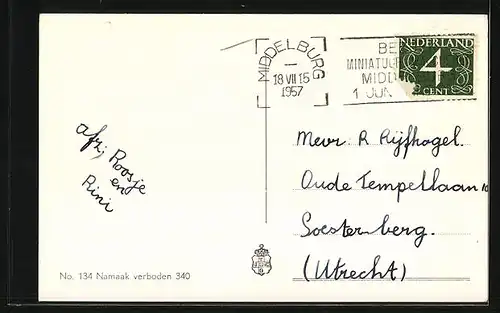 MIDDELBURG
18 VII 15
1957
BE
MINIATU
MIDD
1 JUN
NEDERLAND
4
CENT
Mevr. R Rijfkogel.
Oude Tempellaan 10
Soesterberg.
(Utrecht)
afz,
Roosje
en
Rini
No. 134 Namaak verboden 340